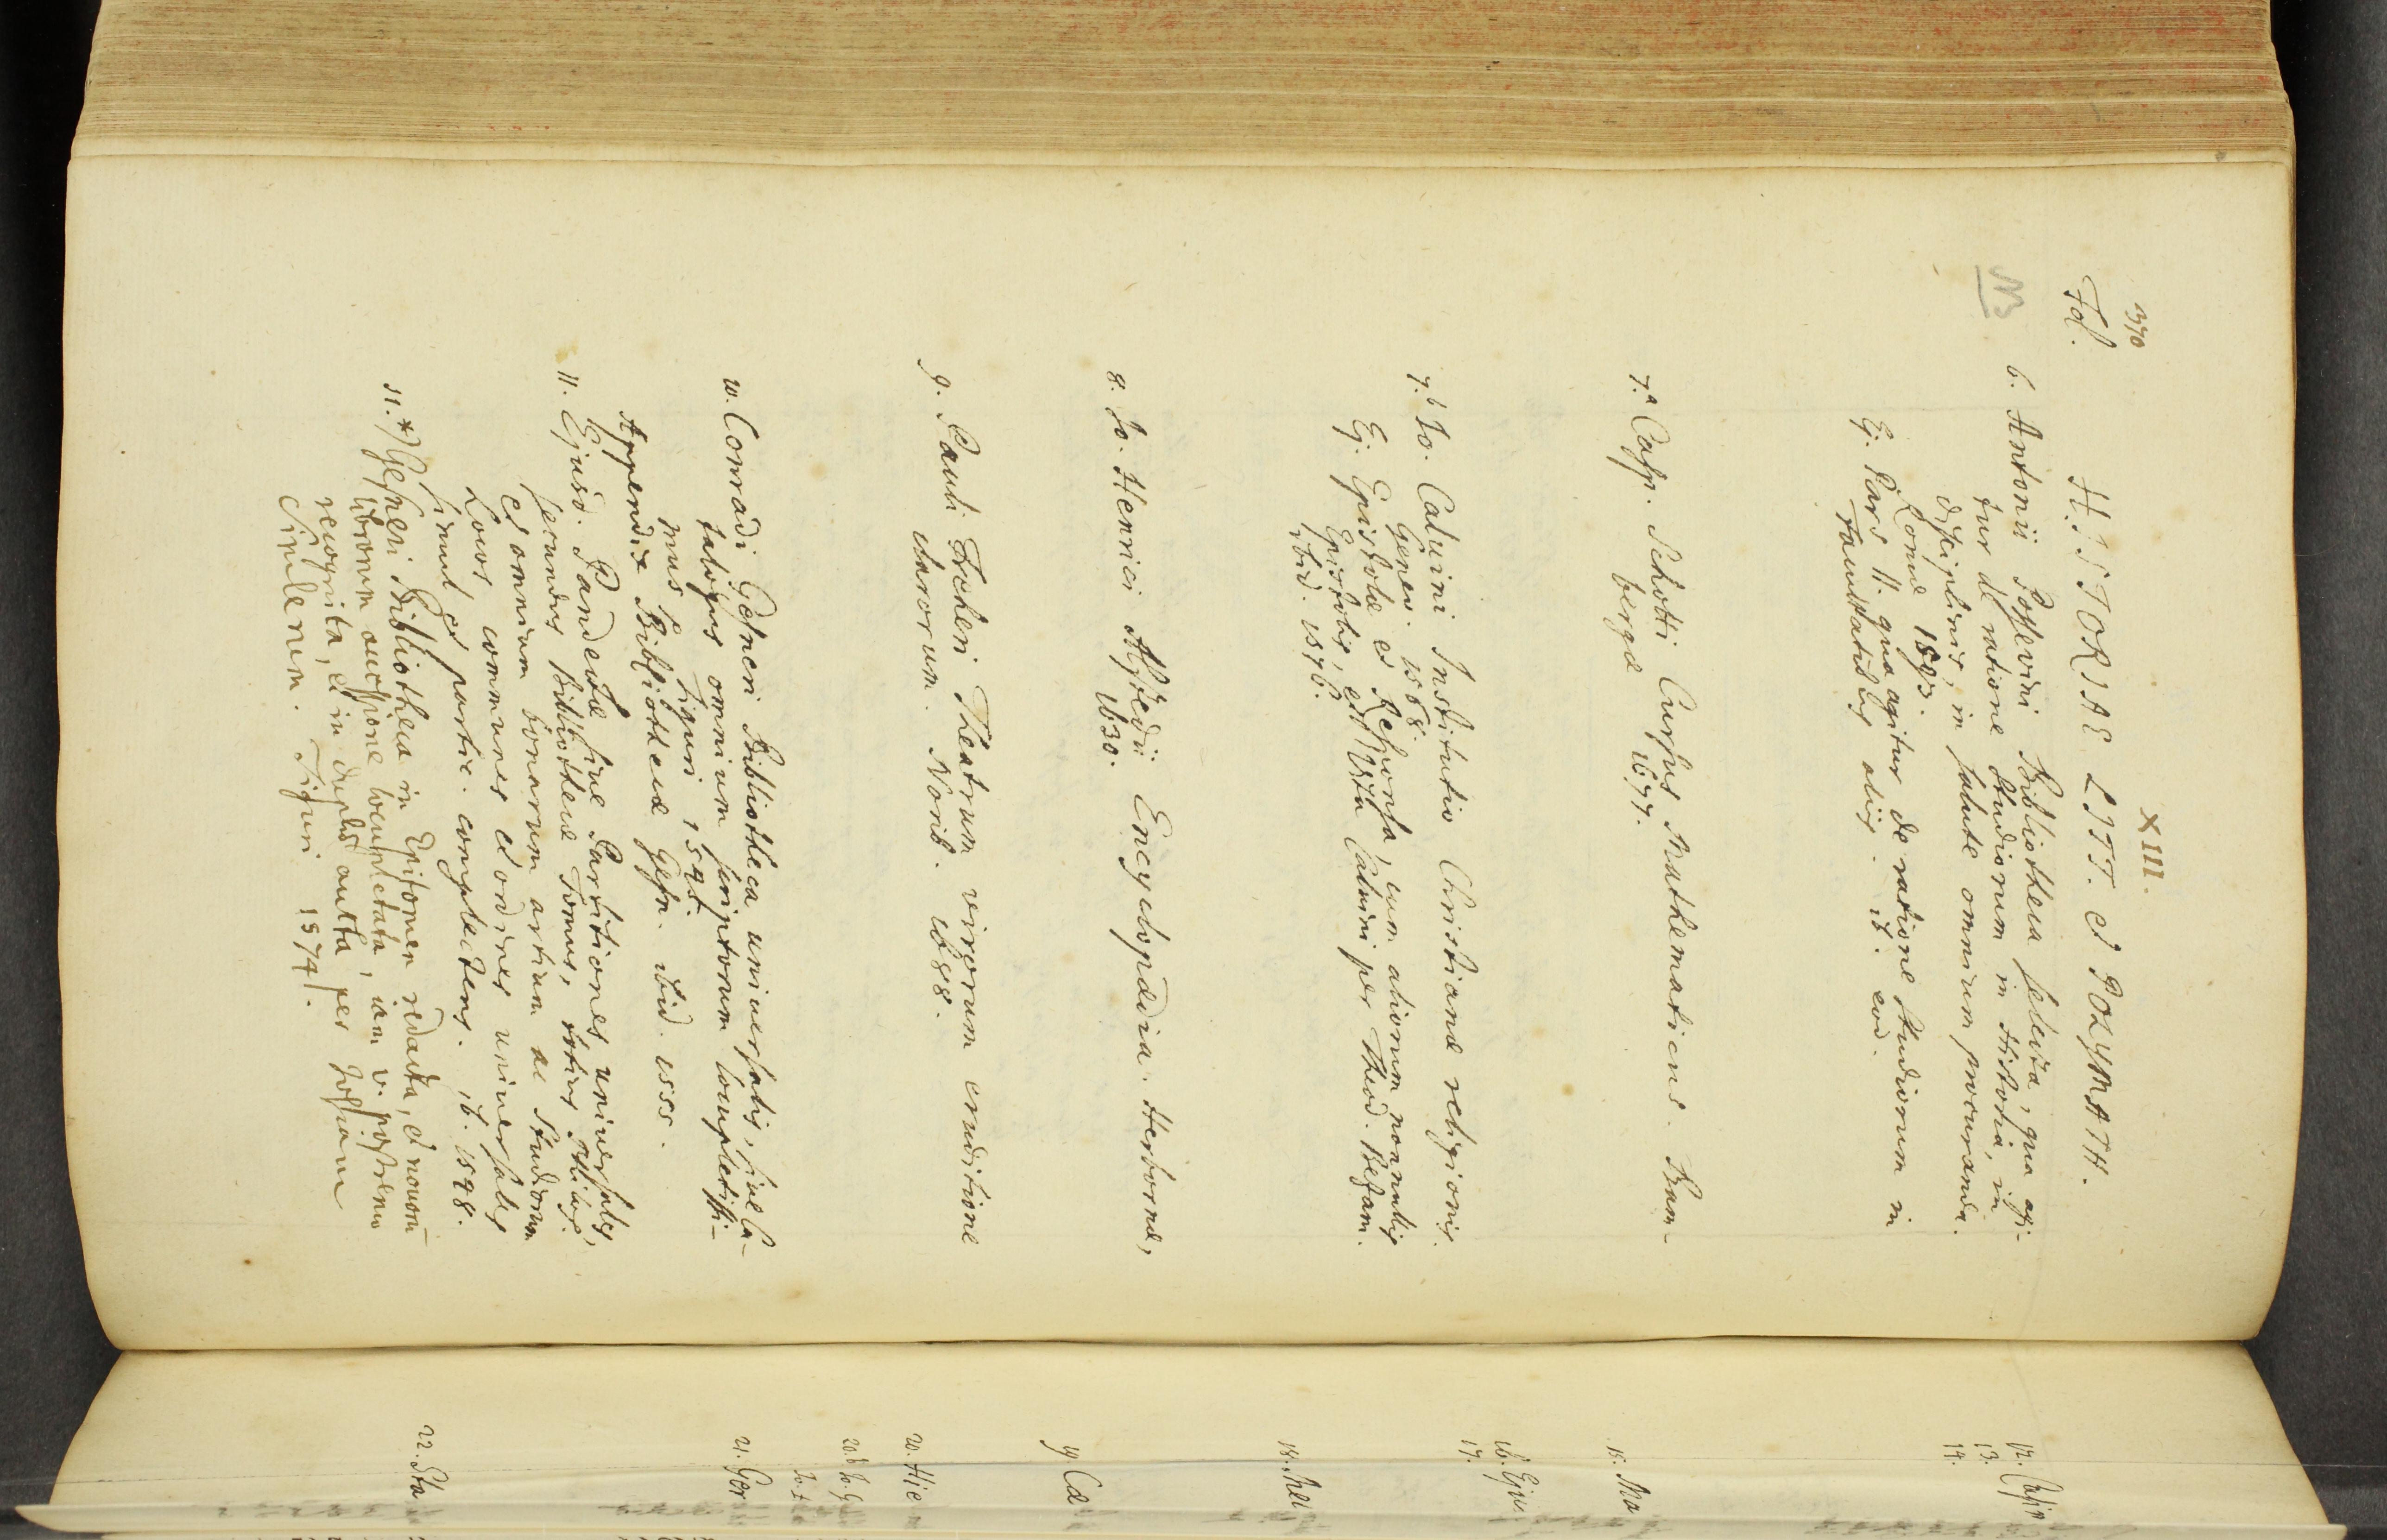 370
XIII.
Fol.
HISTORIAE LITT. et POLYMATH.
6. Antonii Possevini Bibliotheca selecta, qua agi-
tur de ratione studiorum in Historia, in
disciplinis, in salute omnium procuranda.
Romæ 1593.
Ej. Pars II. qua agitur de ratione studiorum in
Facultatibus aliis. ib. eod.
7.a Casp. Schotti Cursus Mathematicus. Bam-
bergæ 1677.
7.b Io. Calvini Institutio Christianæ religionis.
Genev. 1568.
Ej. Epistolæ et Responsa, cum aliorum nonnullis
Epistolis, et Vita Calvini per Theod. Bezam.
ibid. 1576.
8. Io. Henrici Alstedii Encyclopædia. Herbornæ,
1630.
9. Pauli Freheri Theatrum virorum eruditione
clarorum. Norib. 1688.
10. Conradi Gesneri Bibliotheca universalis, sive Ca-
talogus omnium scriptorum locupletissi-
mus. Tiguri 1545.
Appendix Bibliothecæ Gesn. ibid. 1555.
11. Ejusd. Pandectæ sive Partitiones universales,
secundus Bibliothecæ Tomus, totius
et omnium bonarum artium ac Studiorum
Locos communes et ordines universales
simul et partic. complectens. ib. 1548.
11.*) Gesneri Bibliotheca in Epitomen redacta, et novorū
librorum accessione locupletata, iam v. postremo
recognita, et in duplū aucta per Iosiam
Simlerum. Tiguri 1574.
12. Caspa
13.
14.
15. Ma
16. Ejus
17.
18. Mel
19. Cæ
20. Hie
20.b Io. G
21. Ger
22. Sta